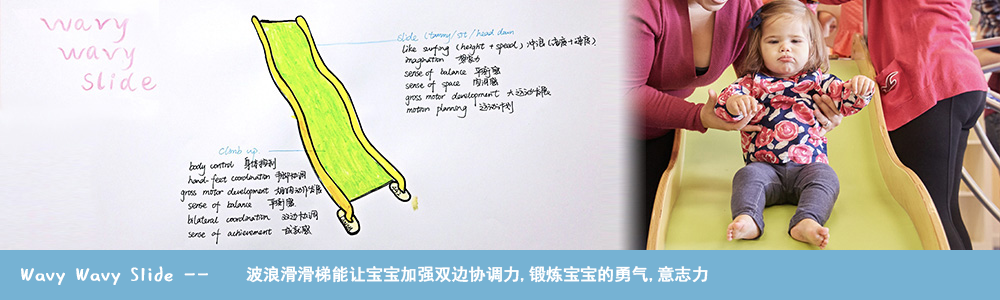 wavy
wavy
slide
slide (tummy/sit/head down
like surfing (height + speed) 冲浪 (高度+速度)
imagination 想象力
sense of balance 平衡感
sense of space 空间感
gross motor development 大运动发展
motion planning 运动计划
climb up
body control 身体控制
hand-feet coordination 手脚协调
gross motor development 大肌肉动作发展
sense of balance 平衡感
bilateral coordination 双边协调
sense of achievement 成就感
Wavy Wavy Slide -- 波浪滑滑梯能让宝宝加强双边协调力,锻炼宝宝的勇气,意志力